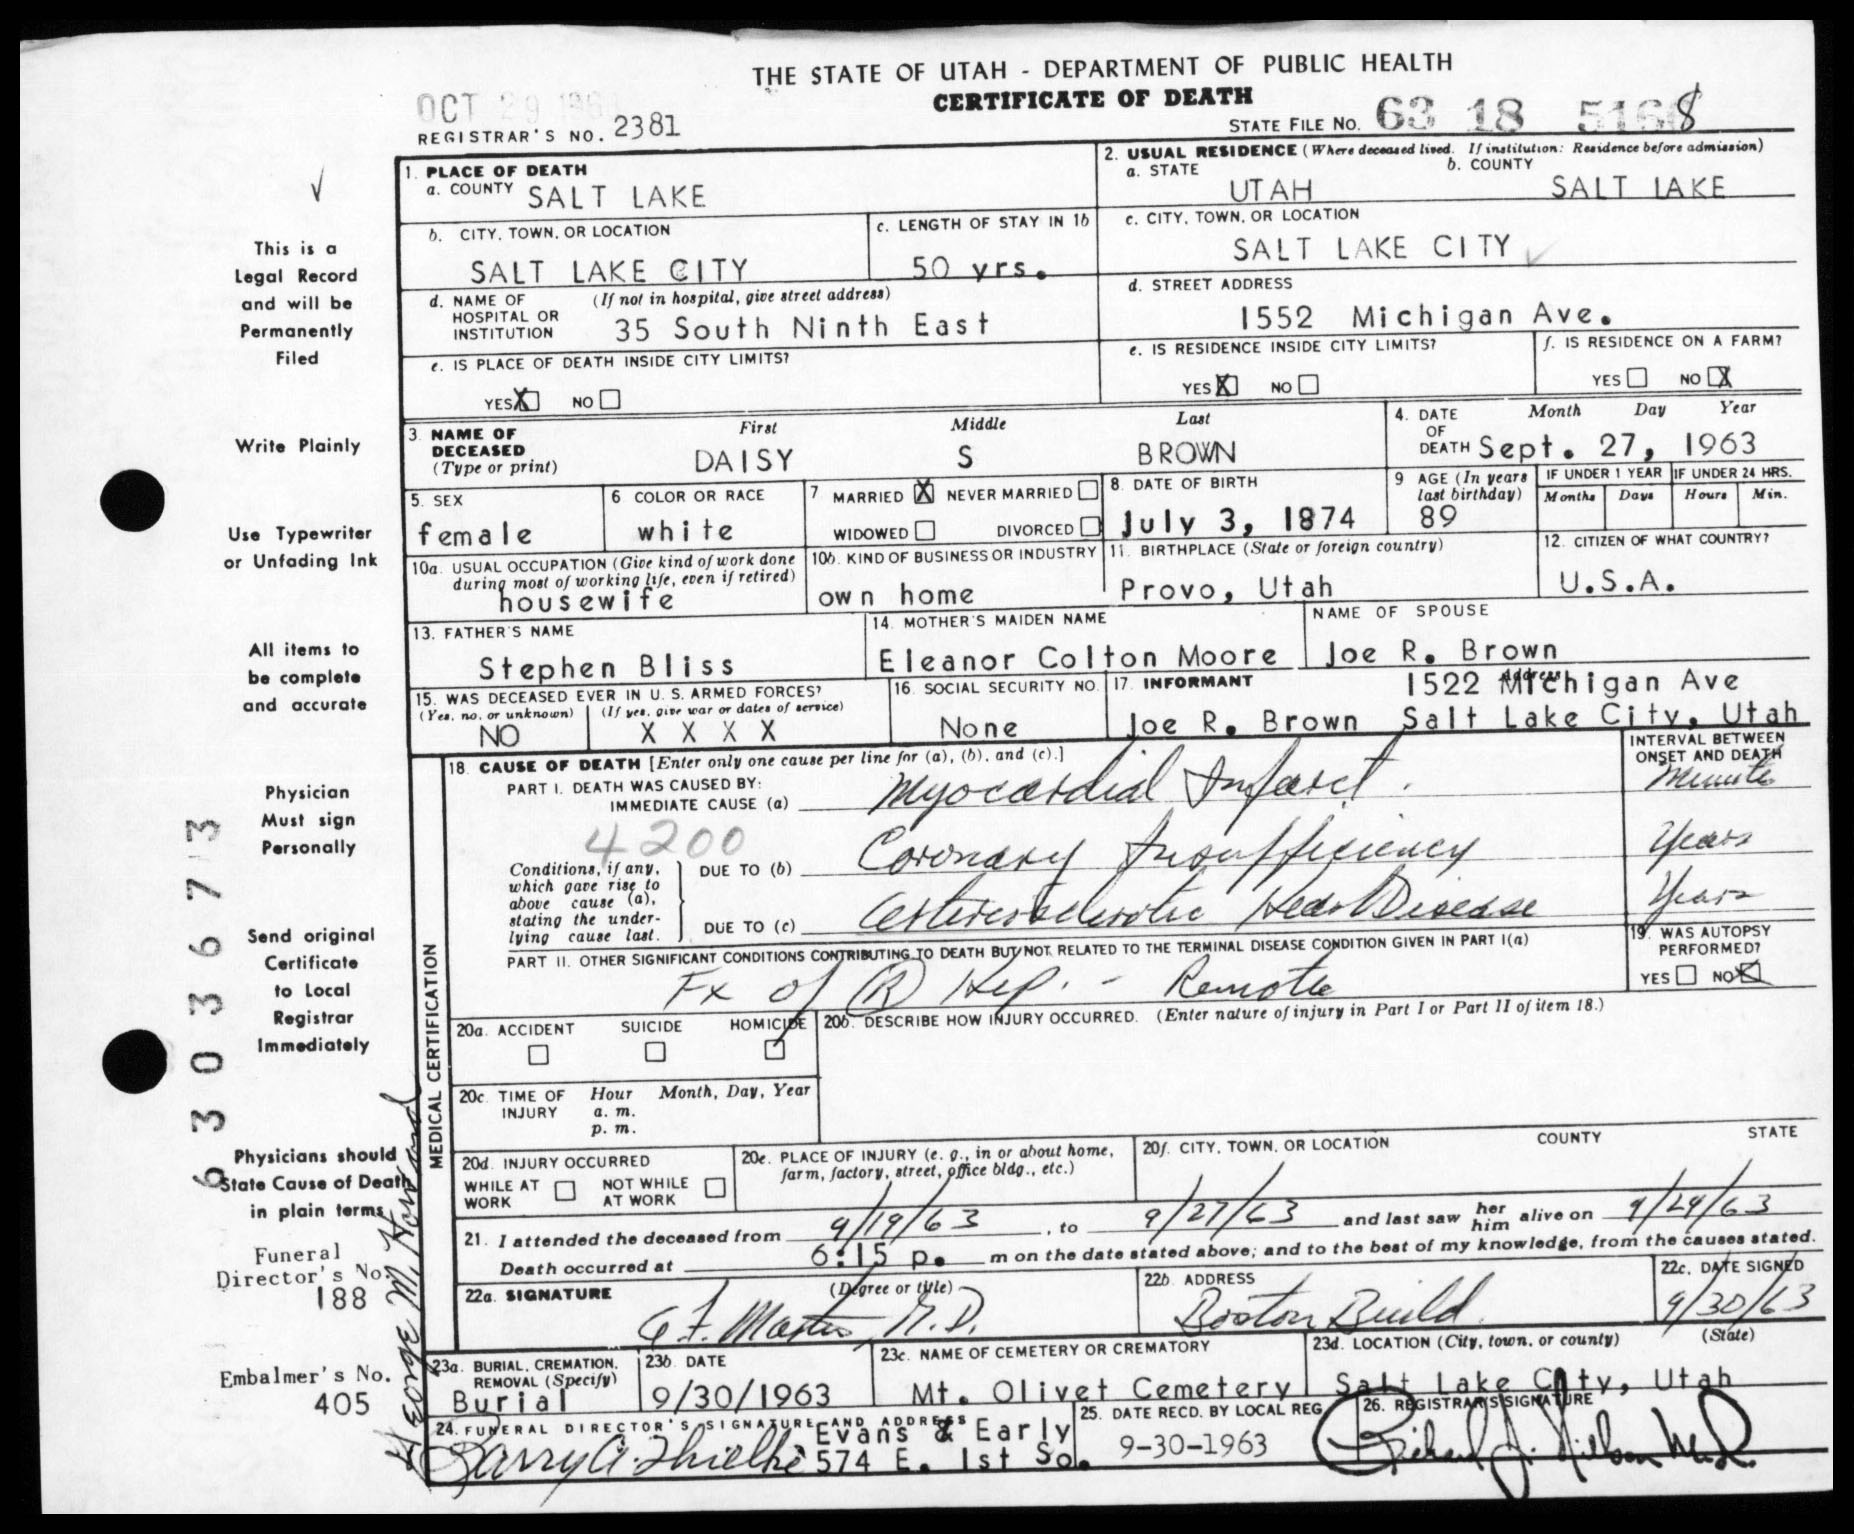 THE STATE OF UTAH - DEPARTMENT OF PUBLIC HEALTH
CERTIFICATE OF DEATH
OCT 29 196
REGISTRAR'S NO. 2381
STATE FILE NO. 63 18 5168
This is a
Legal Record
and will be
Permanently
Filed
Write Plainly
Use Typewriter
or Unfading Ink
All items to
be complete
and accurate
Physician
Must sign
Personally
Send original
Certificate
to Local
Registrar
Immediately
Physicians should
State Cause of Death
in plain terms
Funeral
Director's No
188
Embalmer's No.
405
6303673
George M. Howard
1. PLACE OF DEATH
a. COUNTY SALT LAKE
b. CITY, TOWN, OR LOCATION
SALT LAKE CITY
c. LENGTH OF STAY IN 1b
50 yrs.
d. NAME OF HOSPITAL OR INSTITUTION (If not in hospital, give street address)
35 South Ninth East
e. IS PLACE OF DEATH INSIDE CITY LIMITS?
YES X NO
2. USUAL RESIDENCE (Where deceased lived. If institution: Residence before admission)
a. STATE UTAH b. COUNTY SALT LAKE
c. CITY, TOWN, OR LOCATION
SALT LAKE CITY
d. STREET ADDRESS
1552 Michigan Ave.
e. IS RESIDENCE INSIDE CITY LIMITS?
YES X NO
f. IS RESIDENCE ON A FARM?
YES NO X
3. NAME OF DECEASED (Type or print)
First Middle Last
DAISY S BROWN
4. DATE OF DEATH Month Day Year
Sept. 27, 1963
5. SEX
female
6 COLOR OR RACE
white
7 MARRIED X NEVER MARRIED
WIDOWED DIVORCED
8. DATE OF BIRTH
July 3, 1874
9 AGE (In years last birthday)
89
IF UNDER 1 YEAR IF UNDER 24 HRS.
Months Days Hours Min.
10a. USUAL OCCUPATION (Give kind of work done during most of working life, even if retired)
housewife
10b. KIND OF BUSINESS OR INDUSTRY
own home
11. BIRTHPLACE (State or foreign country)
Provo, Utah
12. CITIZEN OF WHAT COUNTRY?
U.S.A.
13. FATHER'S NAME
Stephen Bliss
14. MOTHER'S MAIDEN NAME
Eleanor Colton Moore
NAME OF SPOUSE
Joe R. Brown
15. WAS DECEASED EVER IN U. S. ARMED FORCES?
(Yes, no, or unknown) (If yes, give war or dates of service)
NO X X X X
16. SOCIAL SECURITY NO.
None
17. INFORMANT Address
1522 Michigan Ave
Joe R. Brown Salt Lake City, Utah
MEDICAL CERTIFICATION
18. CAUSE OF DEATH [Enter only one cause per line for (a), (b), and (c).]
INTERVAL BETWEEN ONSET AND DEATH
PART I. DEATH WAS CAUSED BY:
IMMEDIATE CAUSE (a) Myocardial Infarct. Minutes
4200
Conditions, if any, which gave rise to above cause (a), stating the underlying cause last.
DUE TO (b) Coronary Insufficiency Years
DUE TO (c) Arteriosclerotic Heart Disease Years
PART II. OTHER SIGNIFICANT CONDITIONS CONTRIBUTING TO DEATH BUT NOT RELATED TO THE TERMINAL DISEASE CONDITION GIVEN IN PART I(a)
Fx of (R) Hip. - Remote
19. WAS AUTOPSY PERFORMED?
YES NO X
20a. ACCIDENT SUICIDE HOMICIDE
20b. DESCRIBE HOW INJURY OCCURRED. (Enter nature of injury in Part I or Part II of item 18.)
20c. TIME OF INJURY Hour Month, Day, Year
a. m.
p. m.
20d. INJURY OCCURRED
WHILE AT WORK NOT WHILE AT WORK
20e. PLACE OF INJURY (e. g., in or about home, farm, factory, street, office bldg., etc.)
20f. CITY, TOWN, OR LOCATION COUNTY STATE
21. I attended the deceased from 9/19/63, to 9/27/63 and last saw her him alive on 9/24/63
Death occurred at 6:15 p. m on the date stated above; and to the best of my knowledge, from the causes stated.
22a. SIGNATURE (Degree or title)
M.D.
22b. ADDRESS
Boston Build.
22c. DATE SIGNED
9/30/63
23a. BURIAL, CREMATION, REMOVAL (Specify)
Burial
23b. DATE
9/30/1963
23c. NAME OF CEMETERY OR CREMATORY
Mt. Olivet Cemetery
23d. LOCATION (City, town, or county) (State)
Salt Lake City, Utah
24. FUNERAL DIRECTOR'S SIGNATURE AND ADDRESS
Evans & Early
574 E. 1st So.
25. DATE RECD. BY LOCAL REG.
9-30-1963
26. REGISTRAR'S SIGNATURE